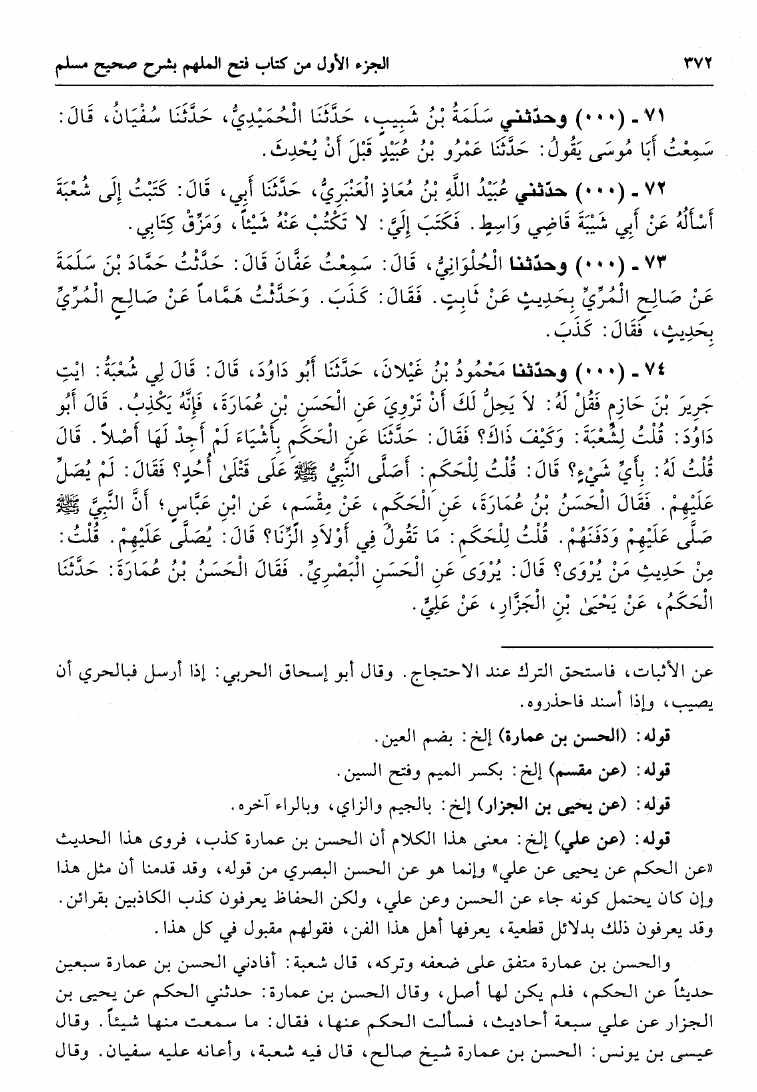 ٣٧٢ الجزء الأول من كتاب فتح الملهم بشرح صحيح مسلم
٧١ ـ (٠٠٠) وحدّثني سَلَمَةُ بْنُ شَبِيبٍ، حَدَّثَنَا الْحُمَيْدِيُّ، حَدَّثَنَا سُفْيَانُ، قَالَ:
سَمِعْتُ أَبَا مُوسَى يَقُولُ: حَدَّثَنَا عَمْرُو بْنُ عُبَيْدٍ قَبْلَ أَنْ يُحْدِثَ.
٧٢ ـ (٠٠٠) حدّثني عُبَيْدُ اللَّهِ بْنُ مُعَاذٍ الْعَنْبَرِيُّ، حَدَّثَنَا أَبِي، قَالَ: كَتَبْتُ إِلَى شُعْبَةَ
أَسْأَلُهُ عَنْ أَبِي شَيْبَةَ قَاضِي وَاسِطٍ. فَكَتَبَ إِلَيَّ: لا تَكْتُبْ عَنْهُ شَيْئاً، وَمَزِّقْ كِتَابِي.
٧٣ ـ (٠٠٠) وحدّثنا الْحُلْوَانِيُّ، قَالَ: سَمِعْتُ عَفَّانَ قَالَ: حَدَّثْتُ حَمَّادَ بْنَ سَلَمَةَ
عَنْ صَالِحٍ الْمُرِّيِّ بِحَدِيثٍ عَنْ ثَابِتٍ. فَقَالَ: كَذَبَ. وَحَدَّثْتُ هَمَّاماً عَنْ صَالِحٍ الْمُرِّيِّ
بِحَدِيثٍ، فَقَالَ: كَذَبَ.
٧٤ ـ (٠٠٠) وحدّثنا مَحْمُودُ بْنُ غَيْلانَ، حَدَّثَنَا أَبُو دَاوُدَ، قَالَ: قَالَ لِي شُعْبَةُ: ايْتِ
جَرِيرَ بْنَ حَازِمٍ فَقُلْ لَهُ: لاَ يَحِلُّ لَكَ أَنْ تَرْوِيَ عَنِ الْحَسَنِ بْنِ عُمَارَةَ، فَإِنَّهُ يَكْذِبُ. قَالَ أَبُو
دَاوُدَ: قُلْتُ لِشُعْبَةَ: وَكَيْفَ ذَاكَ؟ فَقَالَ: حَدَّثَنَا عَنِ الْحَكَمِ بِأَشْيَاءَ لَمْ أَجِدْ لَهَا أَصْلاً. قَالَ
قُلْتُ لَهُ: بِأَيِّ شَيْءٍ؟ قَالَ: قُلْتُ لِلْحَكَمِ: أَصَلَّى النَّبِيُّ ﷺ عَلَى قَتْلَىٰ أُحُدٍ؟ فَقَالَ: لَمْ يُصَلِّ
عَلَيْهِمْ. فَقَالَ الْحَسَنُ بْنُ عُمَارَةَ، عَنِ الْحَكَمِ، عَنْ مِقْسَمٍ، عَنِ ابْنِ عَبَّاسٍ؛ أَنَّ النَّبِيَّ ﷺ
صَلَّى عَلَيْهِمْ وَدَفَنَهُمْ. قُلْتُ لِلْحَكَمِ: مَا تَقُولُ فِي أَوْلاَدِ الزِّنَا؟ قَالَ: يُصَلَّى عَلَيْهِمْ. قُلْتُ:
مِنْ حَدِيثِ مَنْ يُرْوَى؟ قَالَ: يُرْوَى عَنِ الْحَسَنِ الْبَصْرِيِّ. فَقَالَ الْحَسَنُ بْنُ عُمَارَةَ: حَدَّثَنَا
الْحَكَمُ، عَنْ يَحْيَىٰ بْنِ الْجَزَّارِ، عَنْ عَلِيٍّ.
عن الأثبات، فاستحق الترك عند الاحتجاج. وقال أبو إسحاق الحربي: إذا أرسل فبالحري أن
يصيب، وإذا أسند فاحذروه.
قوله: (الحسن بن عمارة) إلخ: بضم العين.
قوله: (عن مقسم) إلخ: بكسر الميم وفتح السين.
قوله: (عن يحيى بن الجزار) إلخ: بالجيم والزاي، وبالراء آخره.
قوله: (عن علي) إلخ: معنى هذا الكلام أن الحسن بن عمارة كذب، فروى هذا الحديث
«عن الحكم عن يحيى عن علي» وإنما هو عن الحسن البصري من قوله، وقد قدمنا أن مثل هذا
وإن كان يحتمل كونه جاء عن الحسن وعن علي، ولكن الحفاظ يعرفون كذب الكاذبين بقرائن.
وقد يعرفون ذلك بدلائل قطعية، يعرفها أهل هذا الفن، فقولهم مقبول في كل هذا.
والحسن بن عمارة متفق على ضعفه وتركه، قال شعبة: أفادني الحسن بن عمارة سبعين
حديثاً عن الحكم، فلم يكن لها أصل، وقال الحسن بن عمارة: حدثني الحكم عن يحيى بن
الجزار عن علي سبعة أحاديث، فسألت الحكم عنها، فقال: ما سمعت منها شيئاً. وقال
عيسى بن يونس: الحسن بن عمارة شيخ صالح، قال فيه شعبة، وأعانه عليه سفيان. وقال